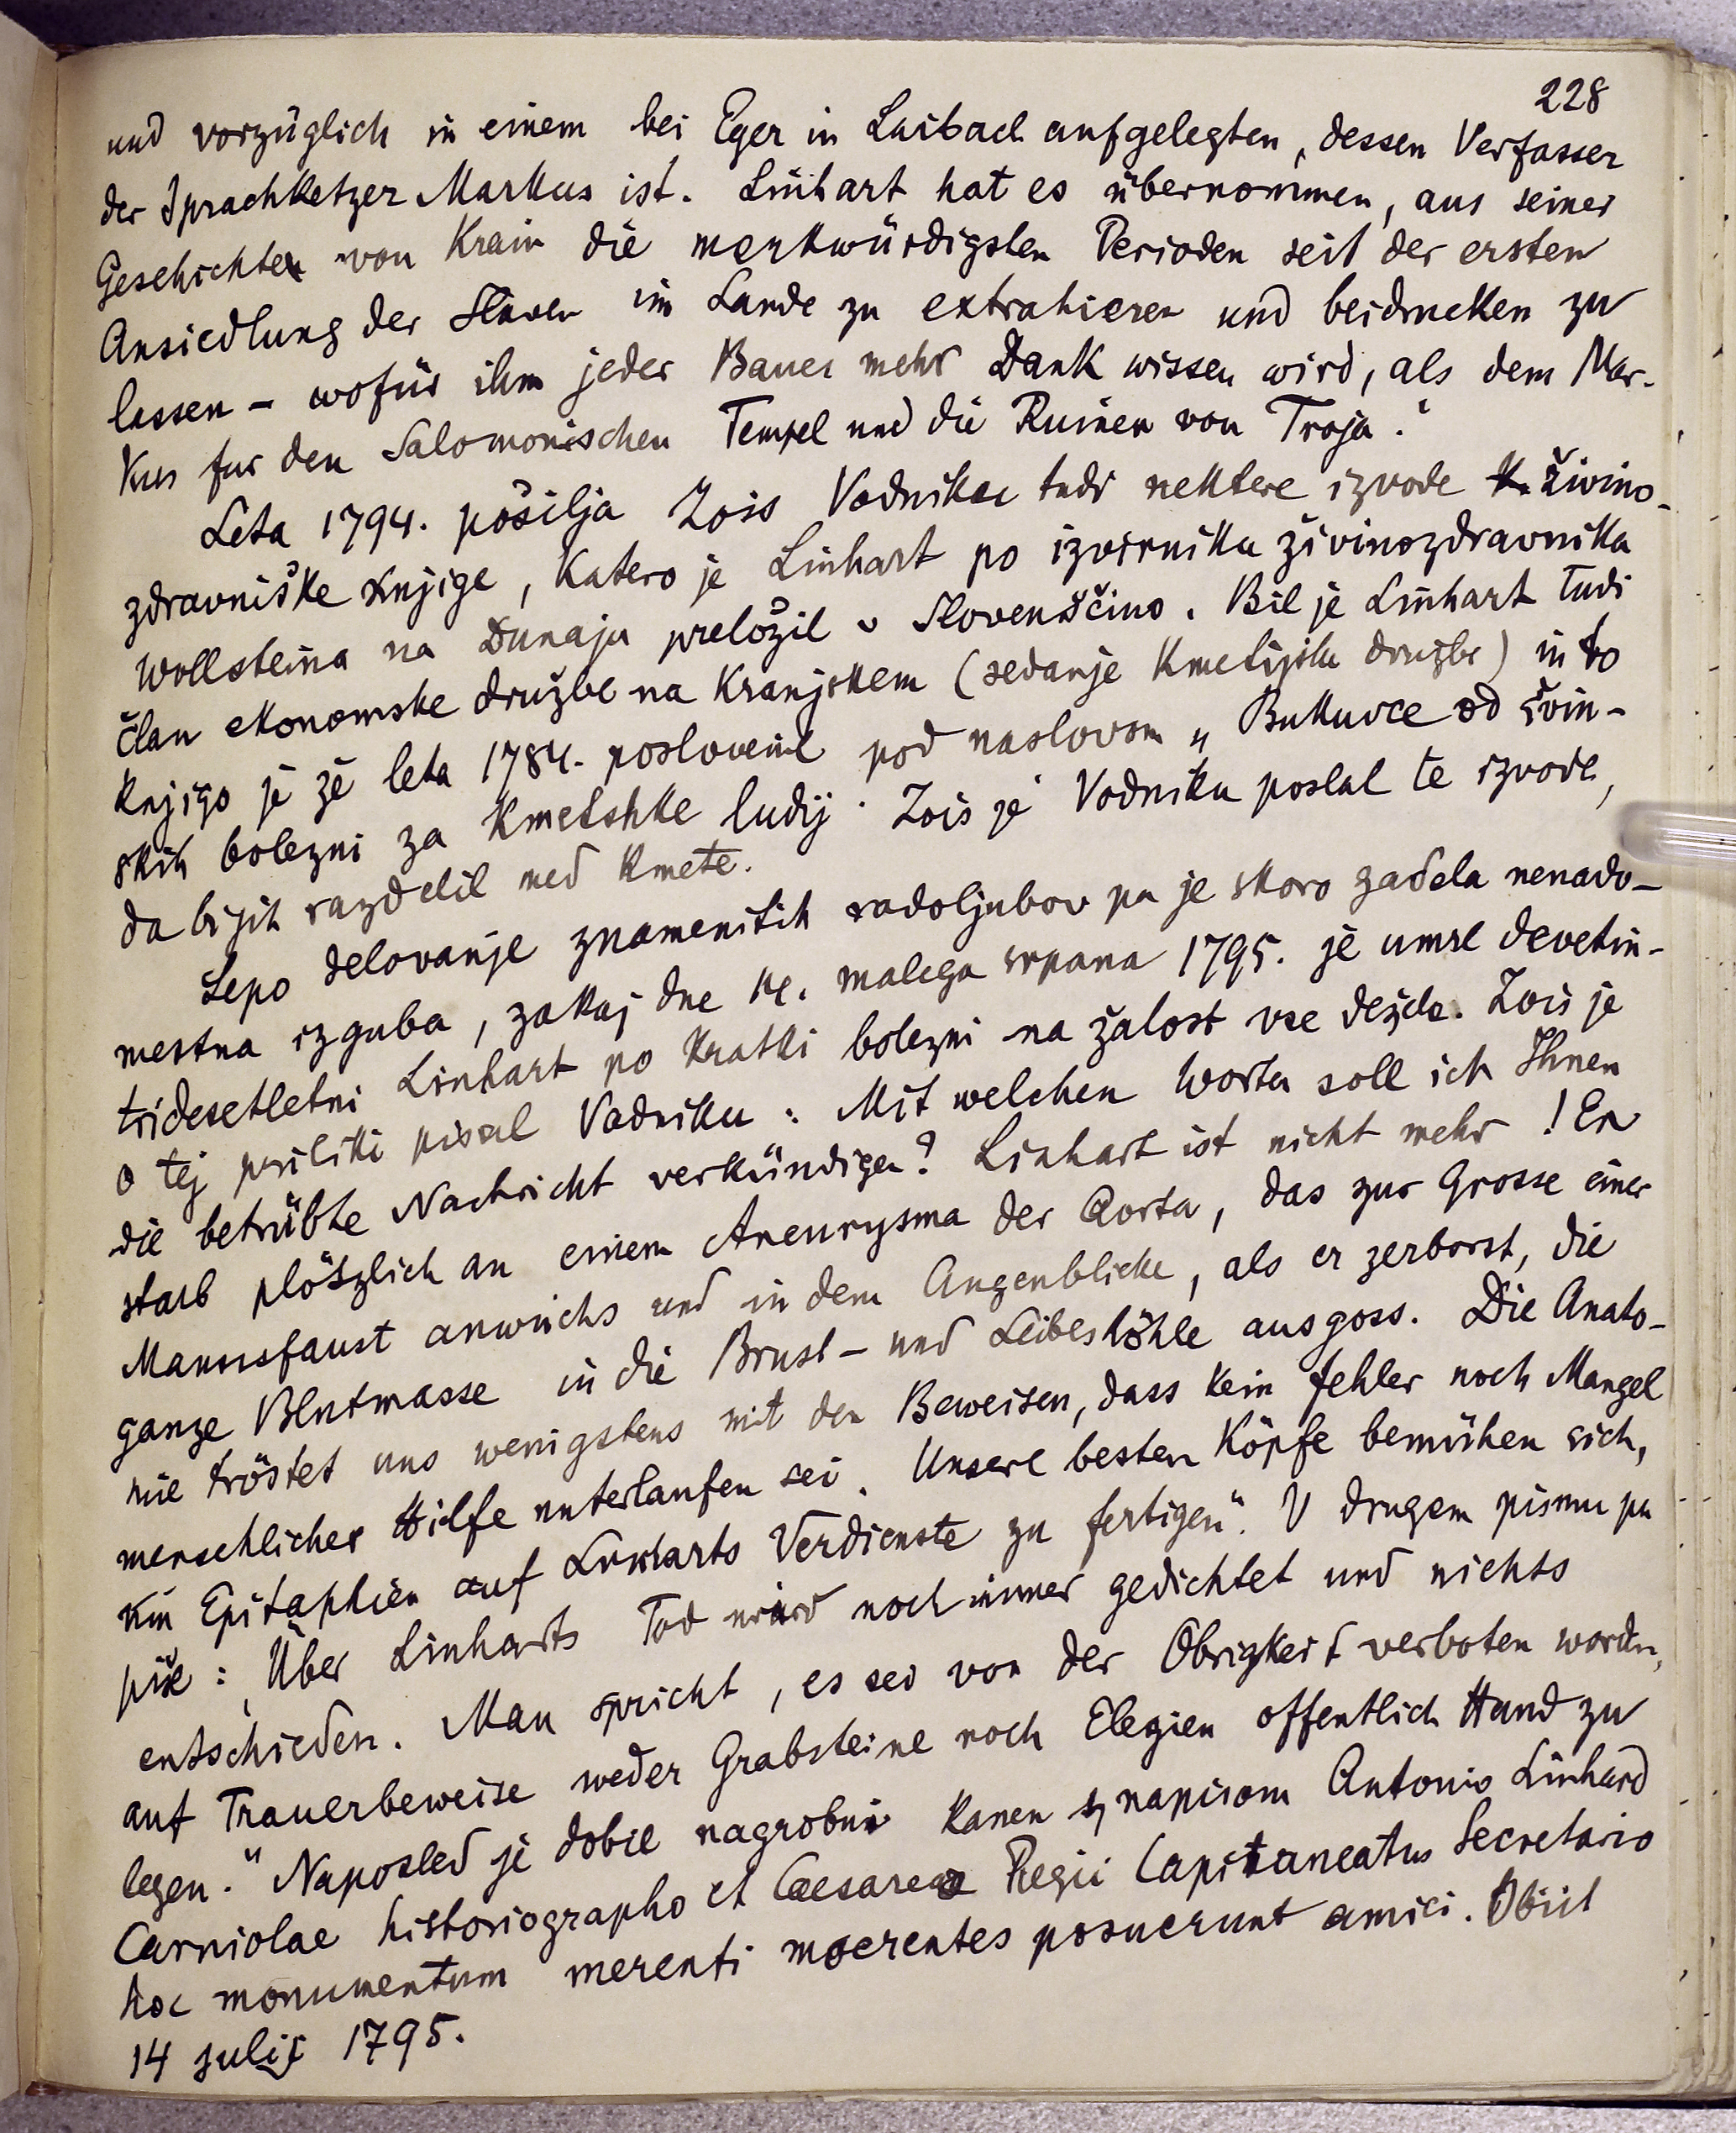 228
und vorzüglich in einem bei Eger in Laibach aufgelegten, dessen Verfasser
der Sprachketzer Markus ist. Linhart hat es übernommen, aus seiner
Geschichte von Krain die merkwürdigsten Perioden seit der ersten
Ansiedlung der Slaven im Lande zu extrahieren und beidrucken zu
lassen - wofür ihm jeder Bauer mehr Dank wissen wird, als dem Mar-
kus fur den Salomonischen Tempel und die Ruinen von Troja."
Leta 1794. pošilja Zois Vodniku tudi nektere izvode živino-
zdravniške knjige, katero je Linhart po izvirniku živinozdravnika
Wollsteina na Dunaju preložil v Slovenščino. Bil je Linhart tudi
član ekonomske družbe na Kranjskem (sedanje kmetijske družbe) in to
knjigo je že leta 1784. poslovenil pod naslovom „Bukuvce od živin-
skih bolezni za kmetshke ludij". Zois je Vodniku poslal te izvode,
da bi jih razdelil med kmete.
Lepo delovanje znamenitih rodoljubov pa je skoro zadela nenado-
mestna izguba, zakaj dne 14. malega srpana 1795. je umrl devetin-
tridesetletni Linhart po kratki bolezni na žalost vse dežele. Zois je
o tej priliki pisal Vodniku: Mit welchen Worten soll ich Ihnen
die betrübte Nachricht verkündigen? Linhart ist nicht mehr! Er
starb plötzlich an einem Aneurysma der Aorta, das zur Grosse einer
Mannsfaust anwuchs und in dem Augenblicke, als er zerborst, die
ganze Blutmasse in die Brust- und Leibeshöhle ausgoss. Die Anato-
mie tröstet uns wenigstens mit den Beweisen, dass kein fehler noch Mangel
menschlicher Hilfe unterlaufen sei. Unsere besten Köpfe bemühen sich,
Epitaphien auf Linharts Verdienste zu fertigen". V drugem pismu pa
piše: „Über Linharts Tod wird noch immer gedichtet und nichts
entschieden. Man spricht, es sei von der Obrigkeit verboten worden,
auf Trauerbeweise weder Grabsteine noch Elegien offentlich Hand zu
legen." Naposled je dobil nagrobni kamen z napisom Antonio Linhard
Carniolae historiographo et Caesareo Regii Capitaneatus Secretario
hoc monumentum merenti moerentes posuerunt amici. Obiit
14 julij 1795.